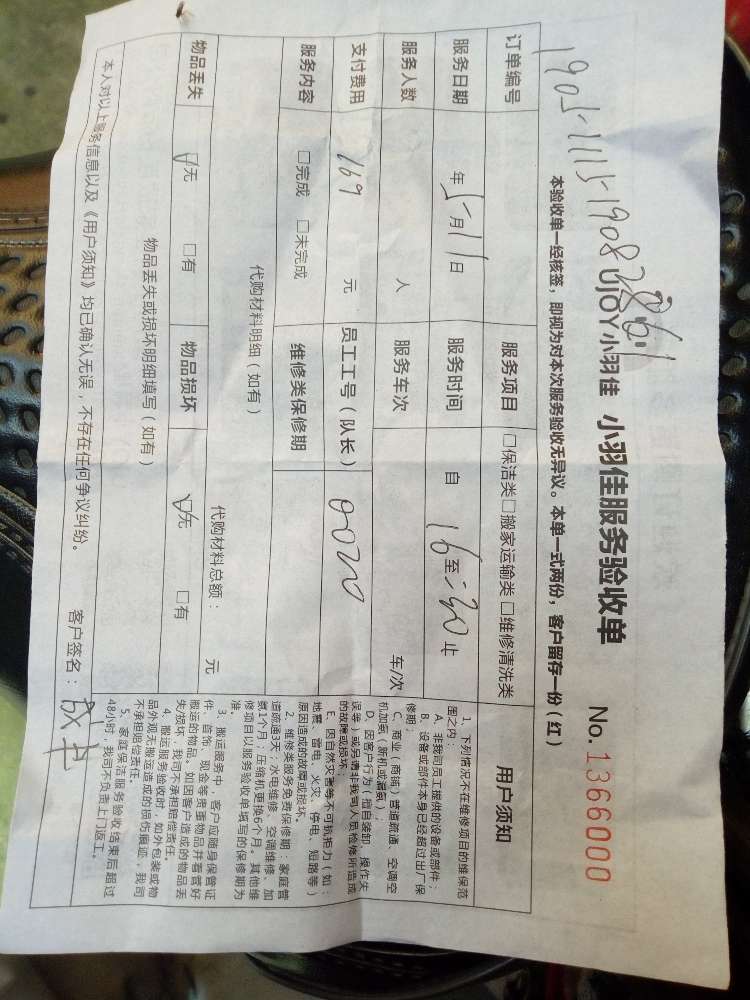 UJOY小羽佳 小羽佳服务验收单
No.1366000
本验收单一经核签，即视为对本次服务验收无异议。本单一式两份，客户留存一份（红）
订单编号 1905-1115-19082861
服务项目 □保洁类□搬家运输类□维修清洗类
服务日期 年5月11日
服务时间 自16至:30止
服务人数 人
服务车次 车/次
支付费用 169 元
员工工号（队长） 0020
服务内容 □完成 □未完成
维修类保修期
代购材料明细（如有）
代购材料总额： 元
物品丢失 ☑无 □有
物品损坏 ☑无 □有
物品丢失或损坏明细填写（如有）
本人对以上服务信息以及《用户须知》均已确认无误，不存在任何争议纠纷。
客户签名：
用户须知
1、下列情况不在维修项目的维保范
围之内：
A、非我司员工提供的设备或部件；
B、设备或部件本身已经超过出厂保
修期；
C、商业（商铺）管道疏通、空调空
机加氟（新机或漏氟）；
D、因客户行为（擅自装卸、操作失
误等）或另请非我司人员检修所造成
的故障或损坏；
E、因自然灾害等不可抗拒为：如：
地震、雷电、火灾、停电、短路等）
原因造成的故障或损坏。
2、维修类服务免费保修期：家庭管
道疏通3天；水电维修、空调维修、加
氟1个月；压缩机更换6个月。其他维
修项目以服务验收单填写的保修期为
准。
3、搬运服务中，客户应随身保管证
件、首饰、现金等贵重物品并看管好
搬运的物品。如因客户造成的物品丢
失/损坏，我司不承担赔偿责任。
4、搬运服务验收时，如外包装或物
品外观无搬运造成的损伤痕迹，我司
不承担赔偿责任。
5、家庭保洁服务验收结束后超过
48小时，我司不负责上门返工。